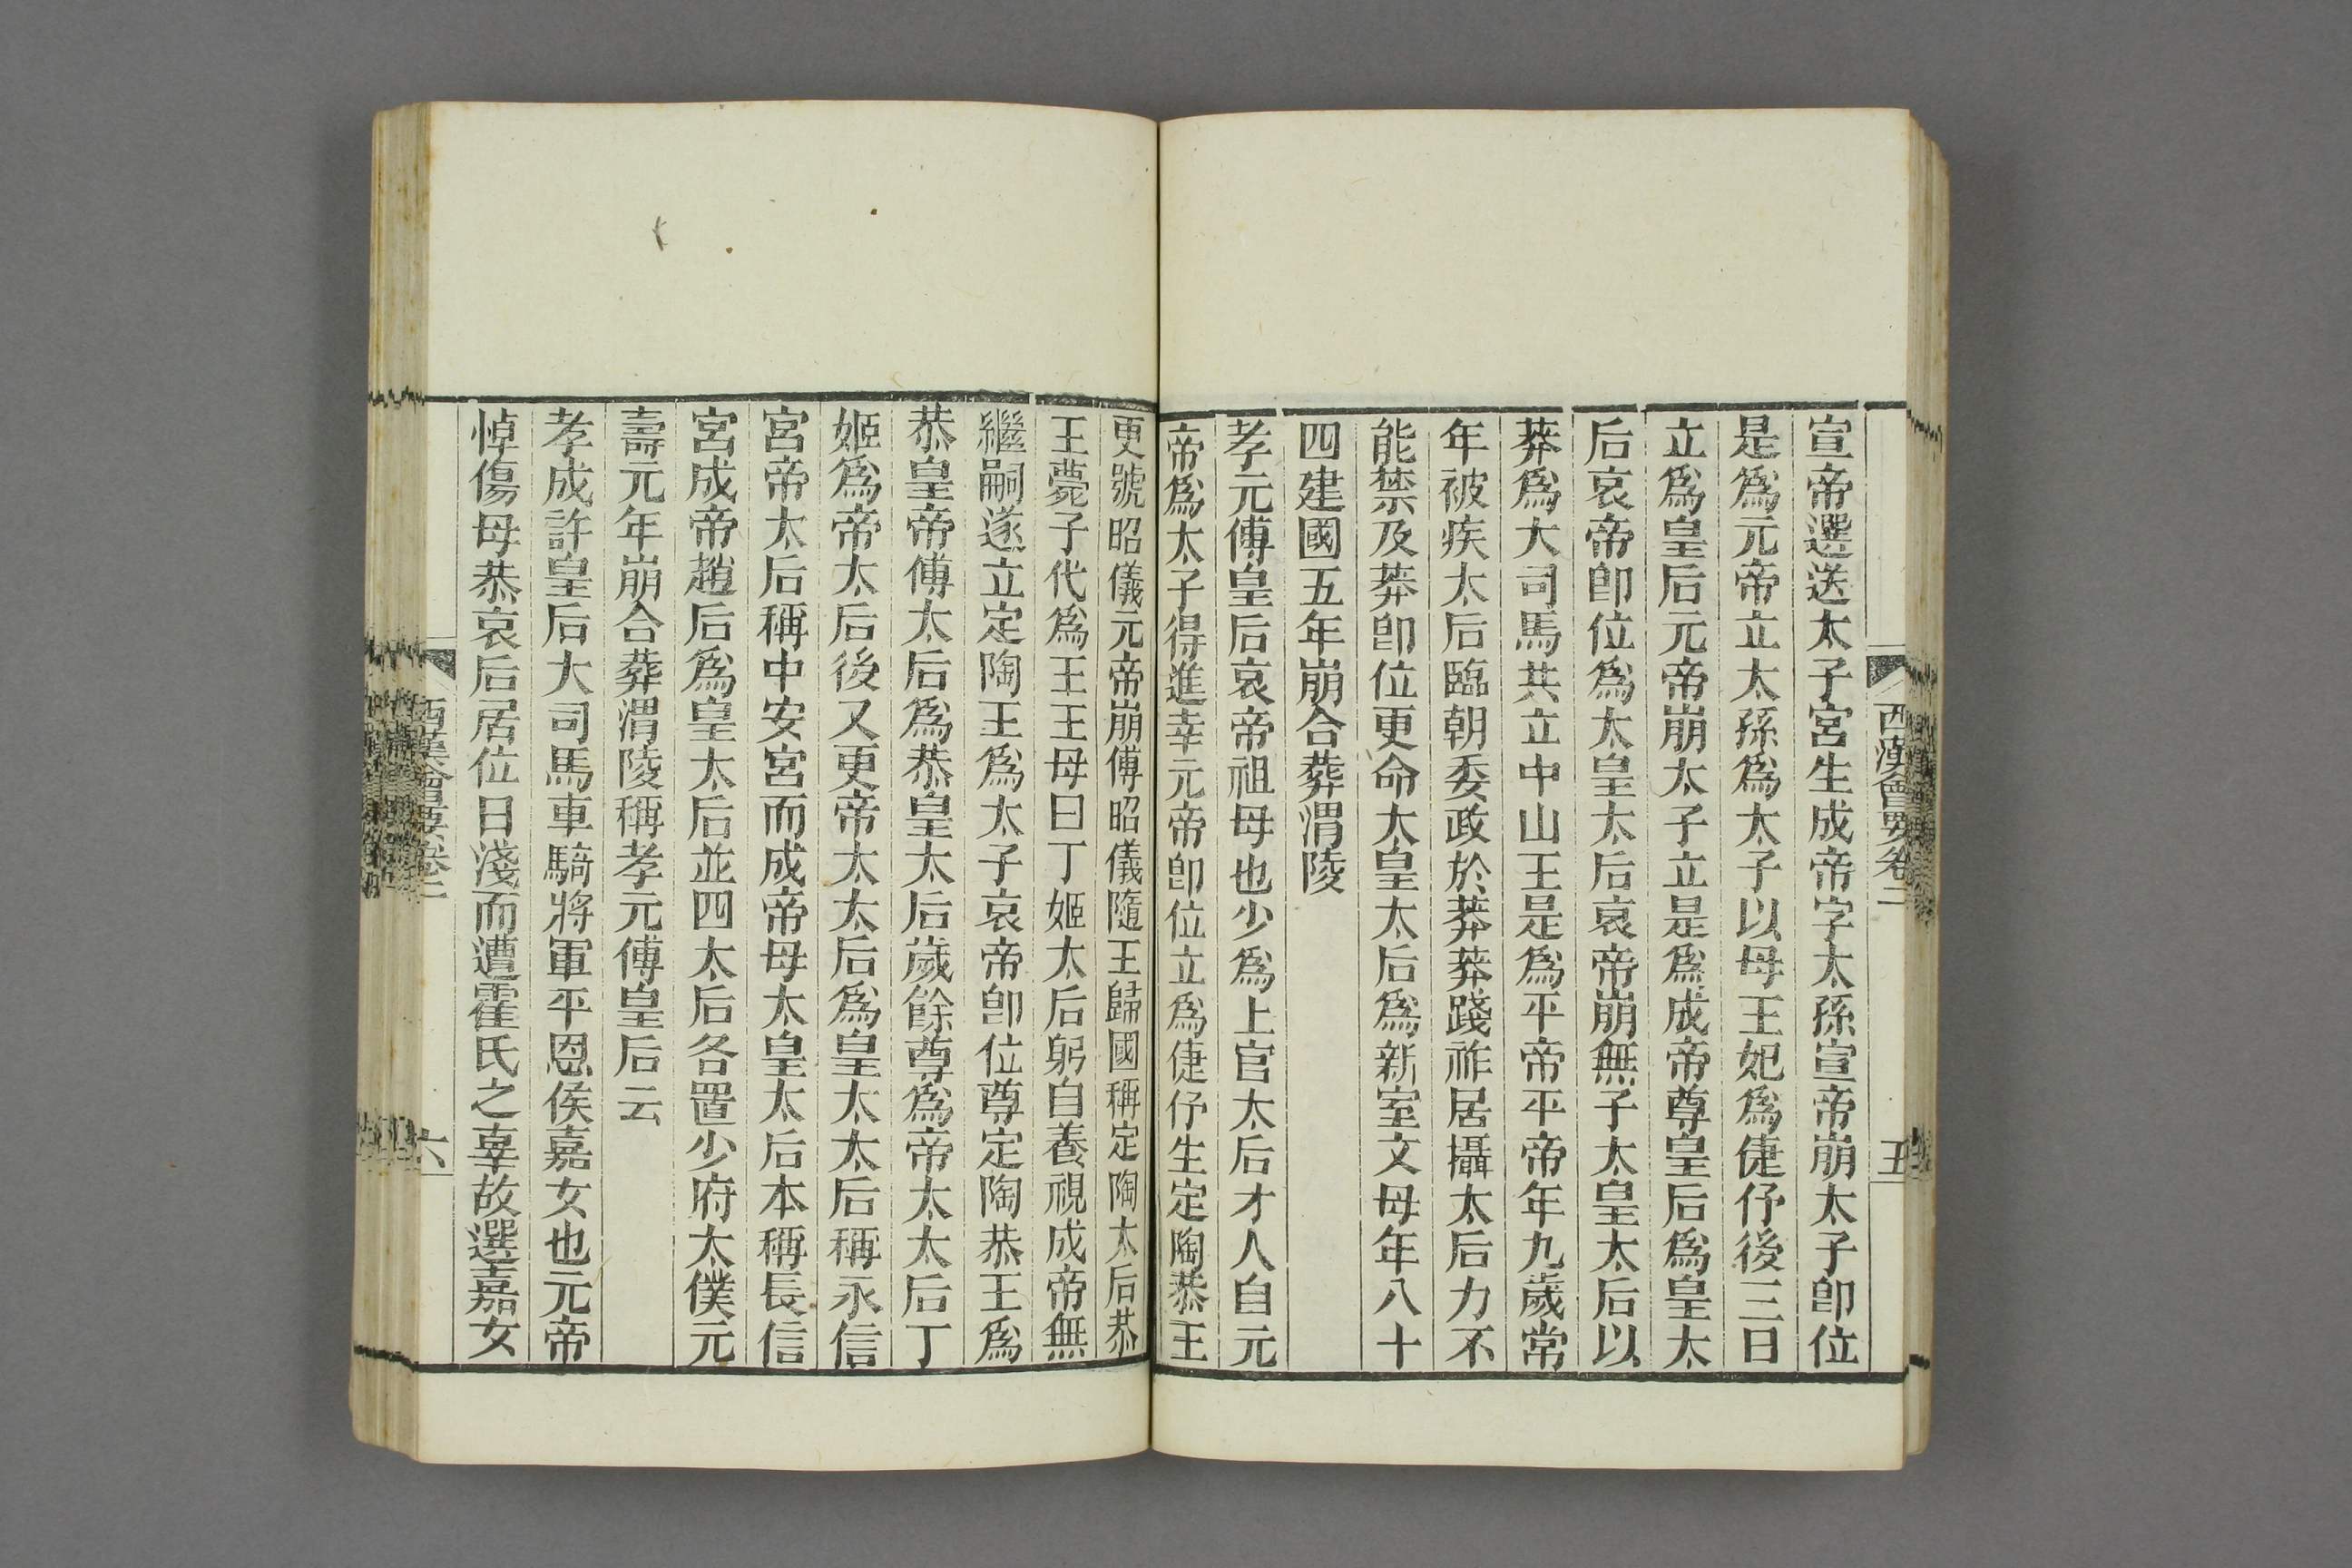 西漢會要卷二 五
宣帝選送太子宮生成帝字太孫宣帝崩太子卽位
是爲元帝立太孫爲太子以母王妃爲倢伃後三日
立爲皇后元帝崩太子立是爲成帝尊皇后爲皇太
后哀帝卽位爲太皇太后哀帝崩無子太皇太后以
莽爲大司馬共立中山王是爲平帝平帝年九歲常
年被疾太后臨朝委政於莽莽踐祚居攝太后力不
能禁及莽卽位更命太皇太后爲新室文母年八十
四建國五年崩合葬渭陵
孝元傅皇后哀帝祖母也少爲上官太后才人自元
帝爲太子得進幸元帝卽位立爲倢伃生定陶恭王
更號昭儀元帝崩傅昭儀隨王歸國稱定陶太后恭
王薨子代爲王王母曰丁姬太后躬自養視成帝無
繼嗣遂立定陶王爲太子哀帝卽位尊定陶恭王爲
恭皇帝傅太后爲恭皇太后歲餘尊爲帝太太后丁
姬爲帝太后後又更帝太太后爲皇太太后稱永信
宮帝太后稱中安宮而成帝母太皇太后本稱長信
宮成帝趙后爲皇太后並四太后各置少府太僕元
壽元年崩合葬渭陵稱孝元傅皇后云
孝成許皇后大司馬車騎將軍平恩侯嘉女也元帝
悼傷母恭哀后居位日淺而遭霍氏之辜故選嘉女
西漢會要卷二 六